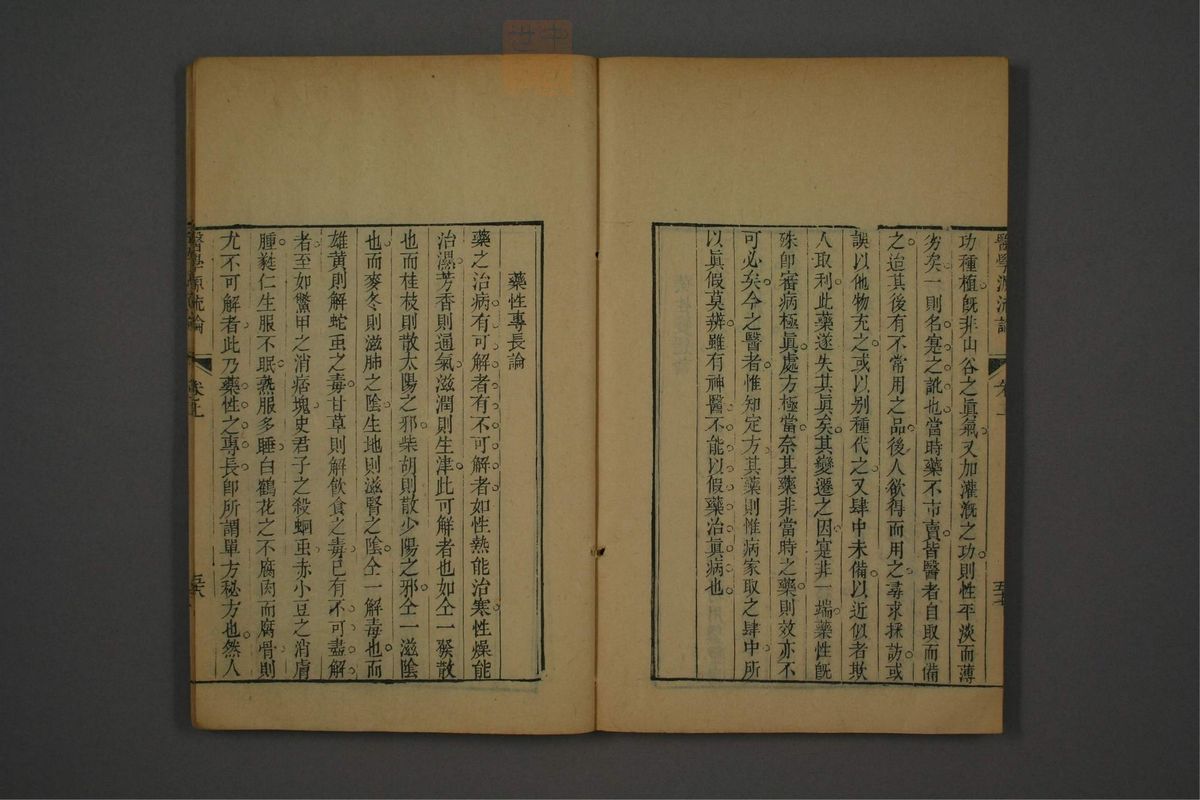 醫學源流論
卷上
功種植旣非山谷之眞氣又加灌漑之功則性平淡而薄
劣矣一則名寔之訛也當時藥不市賣皆醫者自取而備
之迨其後有不常用之品後人欲得而用之尋求採訪或
誤以他物充之或以别種代之又肆中未備以近似者欺
人取利此藥遂失其眞矣其變遷之因寔非一端藥性旣
殊卽審病極眞處方極當奈其藥非當時之藥則效亦不
可必矣今之醫者惟知定方其藥則惟病家取之肆中所
以眞假莫辨雖有神醫不能以假藥治眞病也
藥性專長論
藥之治病有可解者有不可解者如性熱能治寒性燥能
治濕芳香則通氣滋潤則生津此可解者也如仝一發散
也而桂枝則散太陽之邪柴胡則散少陽之邪仝一滋陰
也而麥冬則滋肺之陰生地則滋腎之陰仝一解毒也而
雄黄則解蛇虫之毒甘草則解飮食之毒已有不可盡解
者至如鱉甲之消痞塊史君子之殺蛔虫赤小豆之消膚
腫蕤仁生服不眠熟服多睡白鶴花之不腐肉而腐骨則
尤不可解者此乃藥性之專長卽所謂單方秘方也然人
醫學源流論
卷上